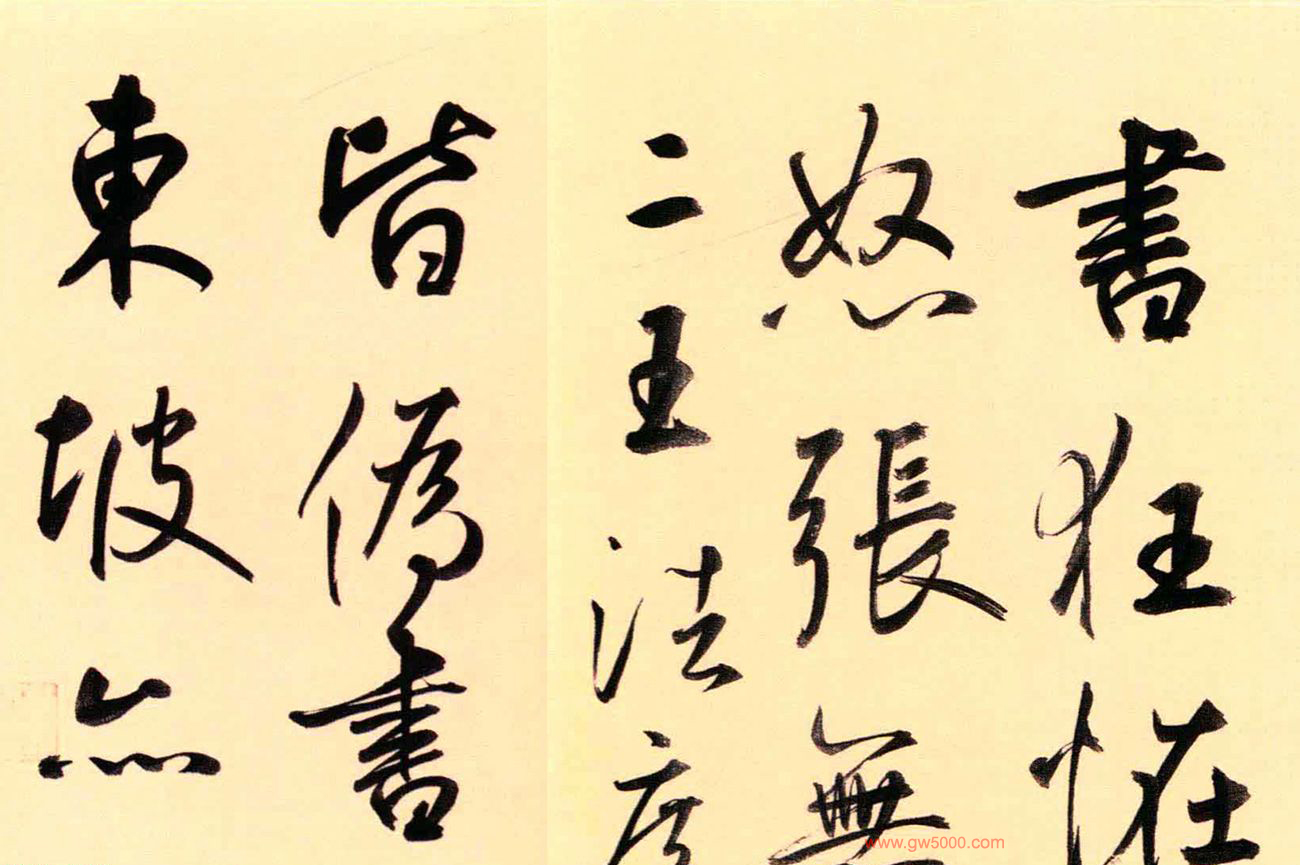 書狂恠
怒張無
二王法度
皆偽書
東坡亦
www.gw5000.com